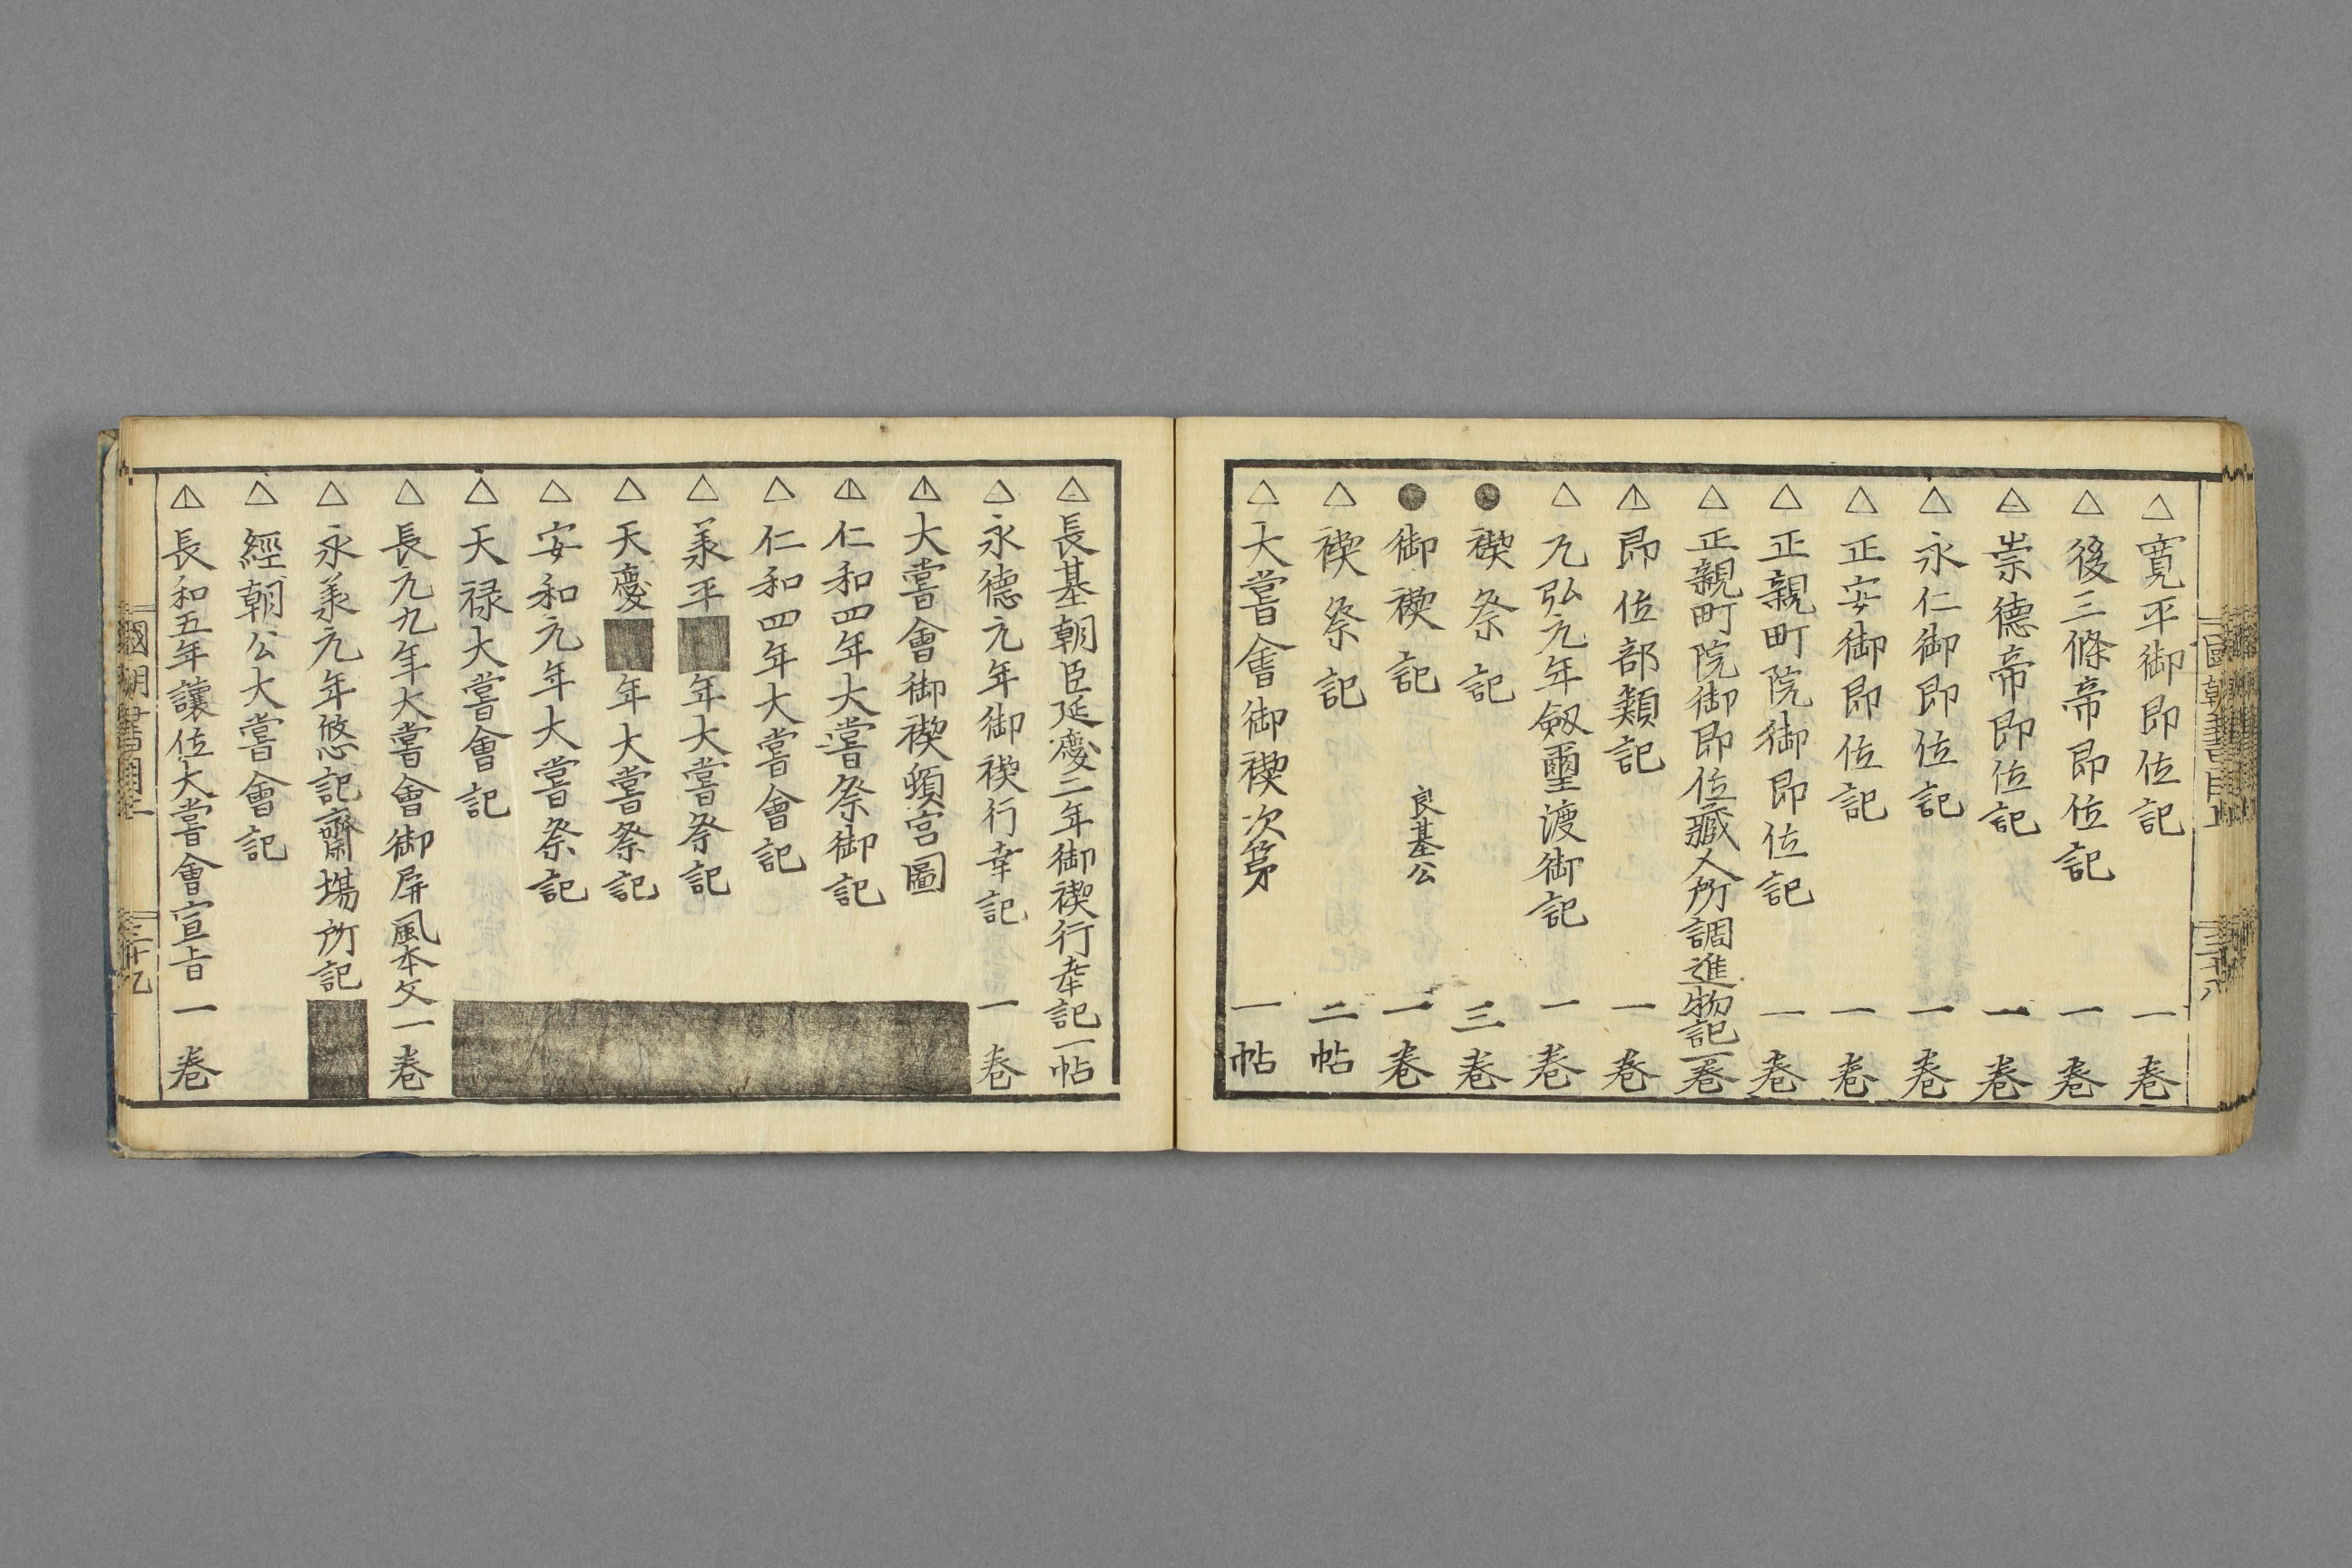 △寛平御即位記 一巻
△後三條帝即位記 一巻
△崇徳帝即位記 一巻
△永仁御即位記 一巻
△正安御即位記 一巻
△正親町院御即位記 一巻
△正親町院御即位藏人所調進物記一巻
△即位部類記 一巻
△元弘元年劔璽渡御記 一巻
●禊祭記 三巻
●御禊記 良基公 一巻
△禊祭記 二帖
△大嘗會御禊次第 一帖
△長基朝臣延慶二年御禊行幸記一帖
△永德元年御禊行幸記 一巻
△大嘗會御禊頓宮圖
△仁和四年大嘗祭御記
△仁和四年大嘗會記
△羕平■年大嘗祭記
△天慶■年大嘗祭記
△安和元年大嘗祭記
△天禄大嘗會記
△長元九年大嘗會御屏風本文一巻
△永羕元年悠記齋場所記
△經朝公大嘗會記
△長和五年讓位大嘗會宣旨 一巻